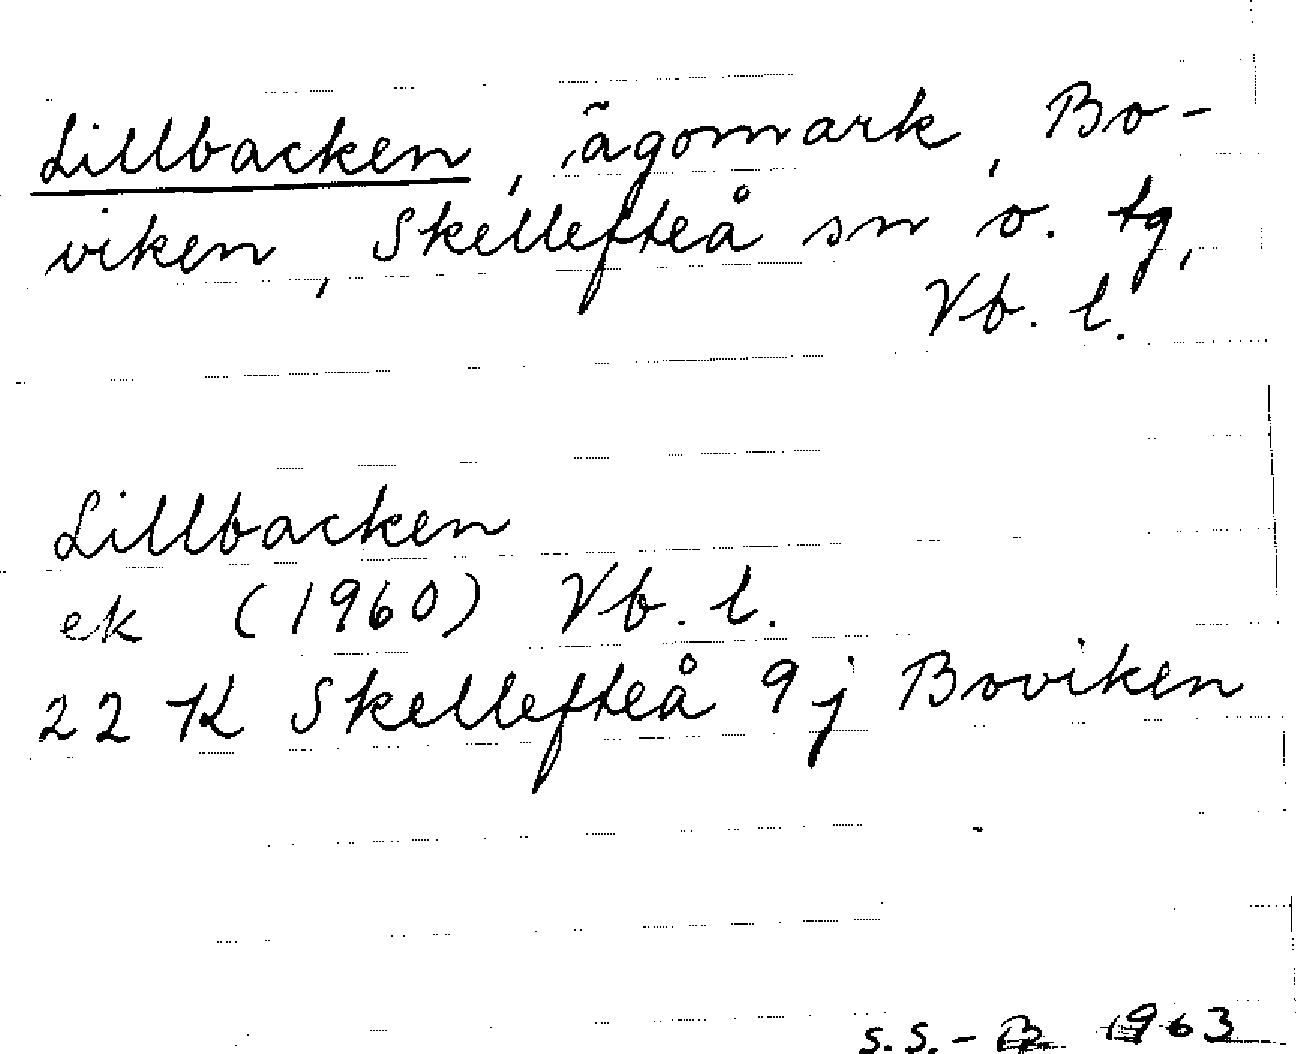 Lillbacken, ägomark, Bo-
viken, Skellefteå sn o. tg,
Vb. l.
Lillbacken
ek (1960) Vb. l.
22 K Skellefteå 9 j Boviken
S.S.-B. 1963